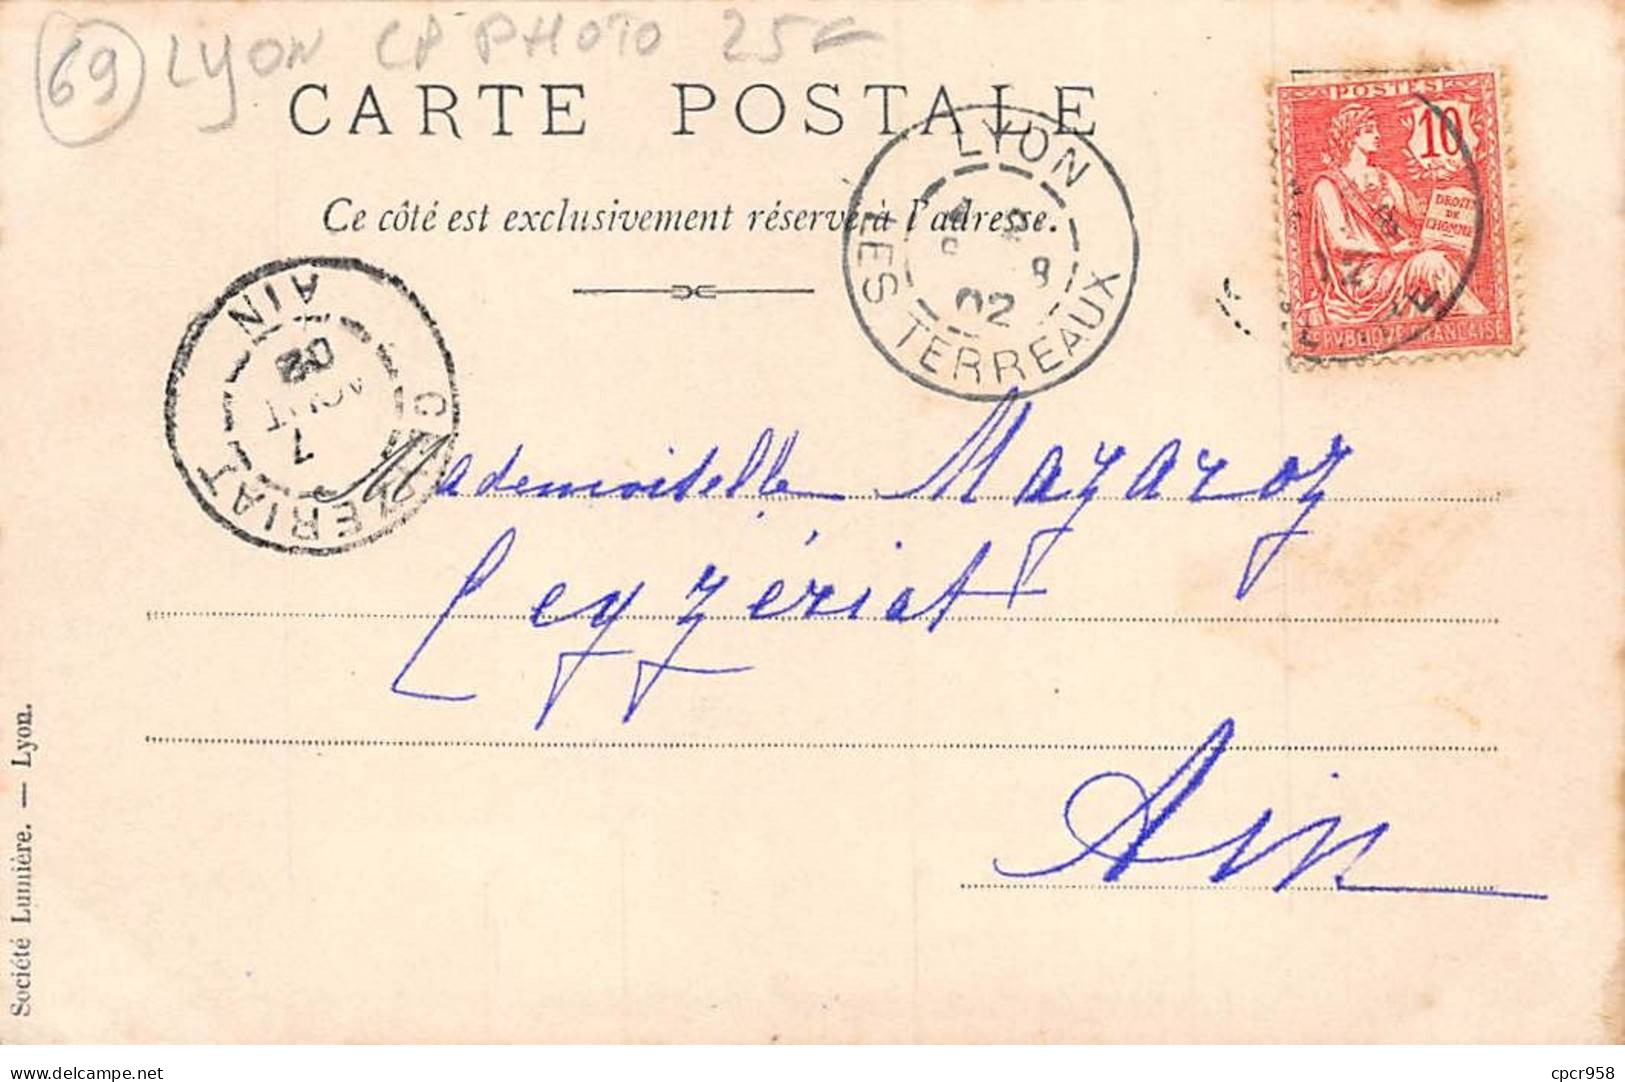 69 LYON CP PHOTO 25
CARTE POSTALE
Ce côté est exclusivement réservé à l'adresse.
POSTES
10
DROITS
DE
L'HOMME
REPVBLIQVE FRANÇAISE
LYON
LES TERREAUX
8
02
AIN
02
AOUT
7
CEYZERIAT
Mademoiselle Mazaroz
Ceyzériat
Ain
Société Lumière. — Lyon.
delcampe.net
cpcr958